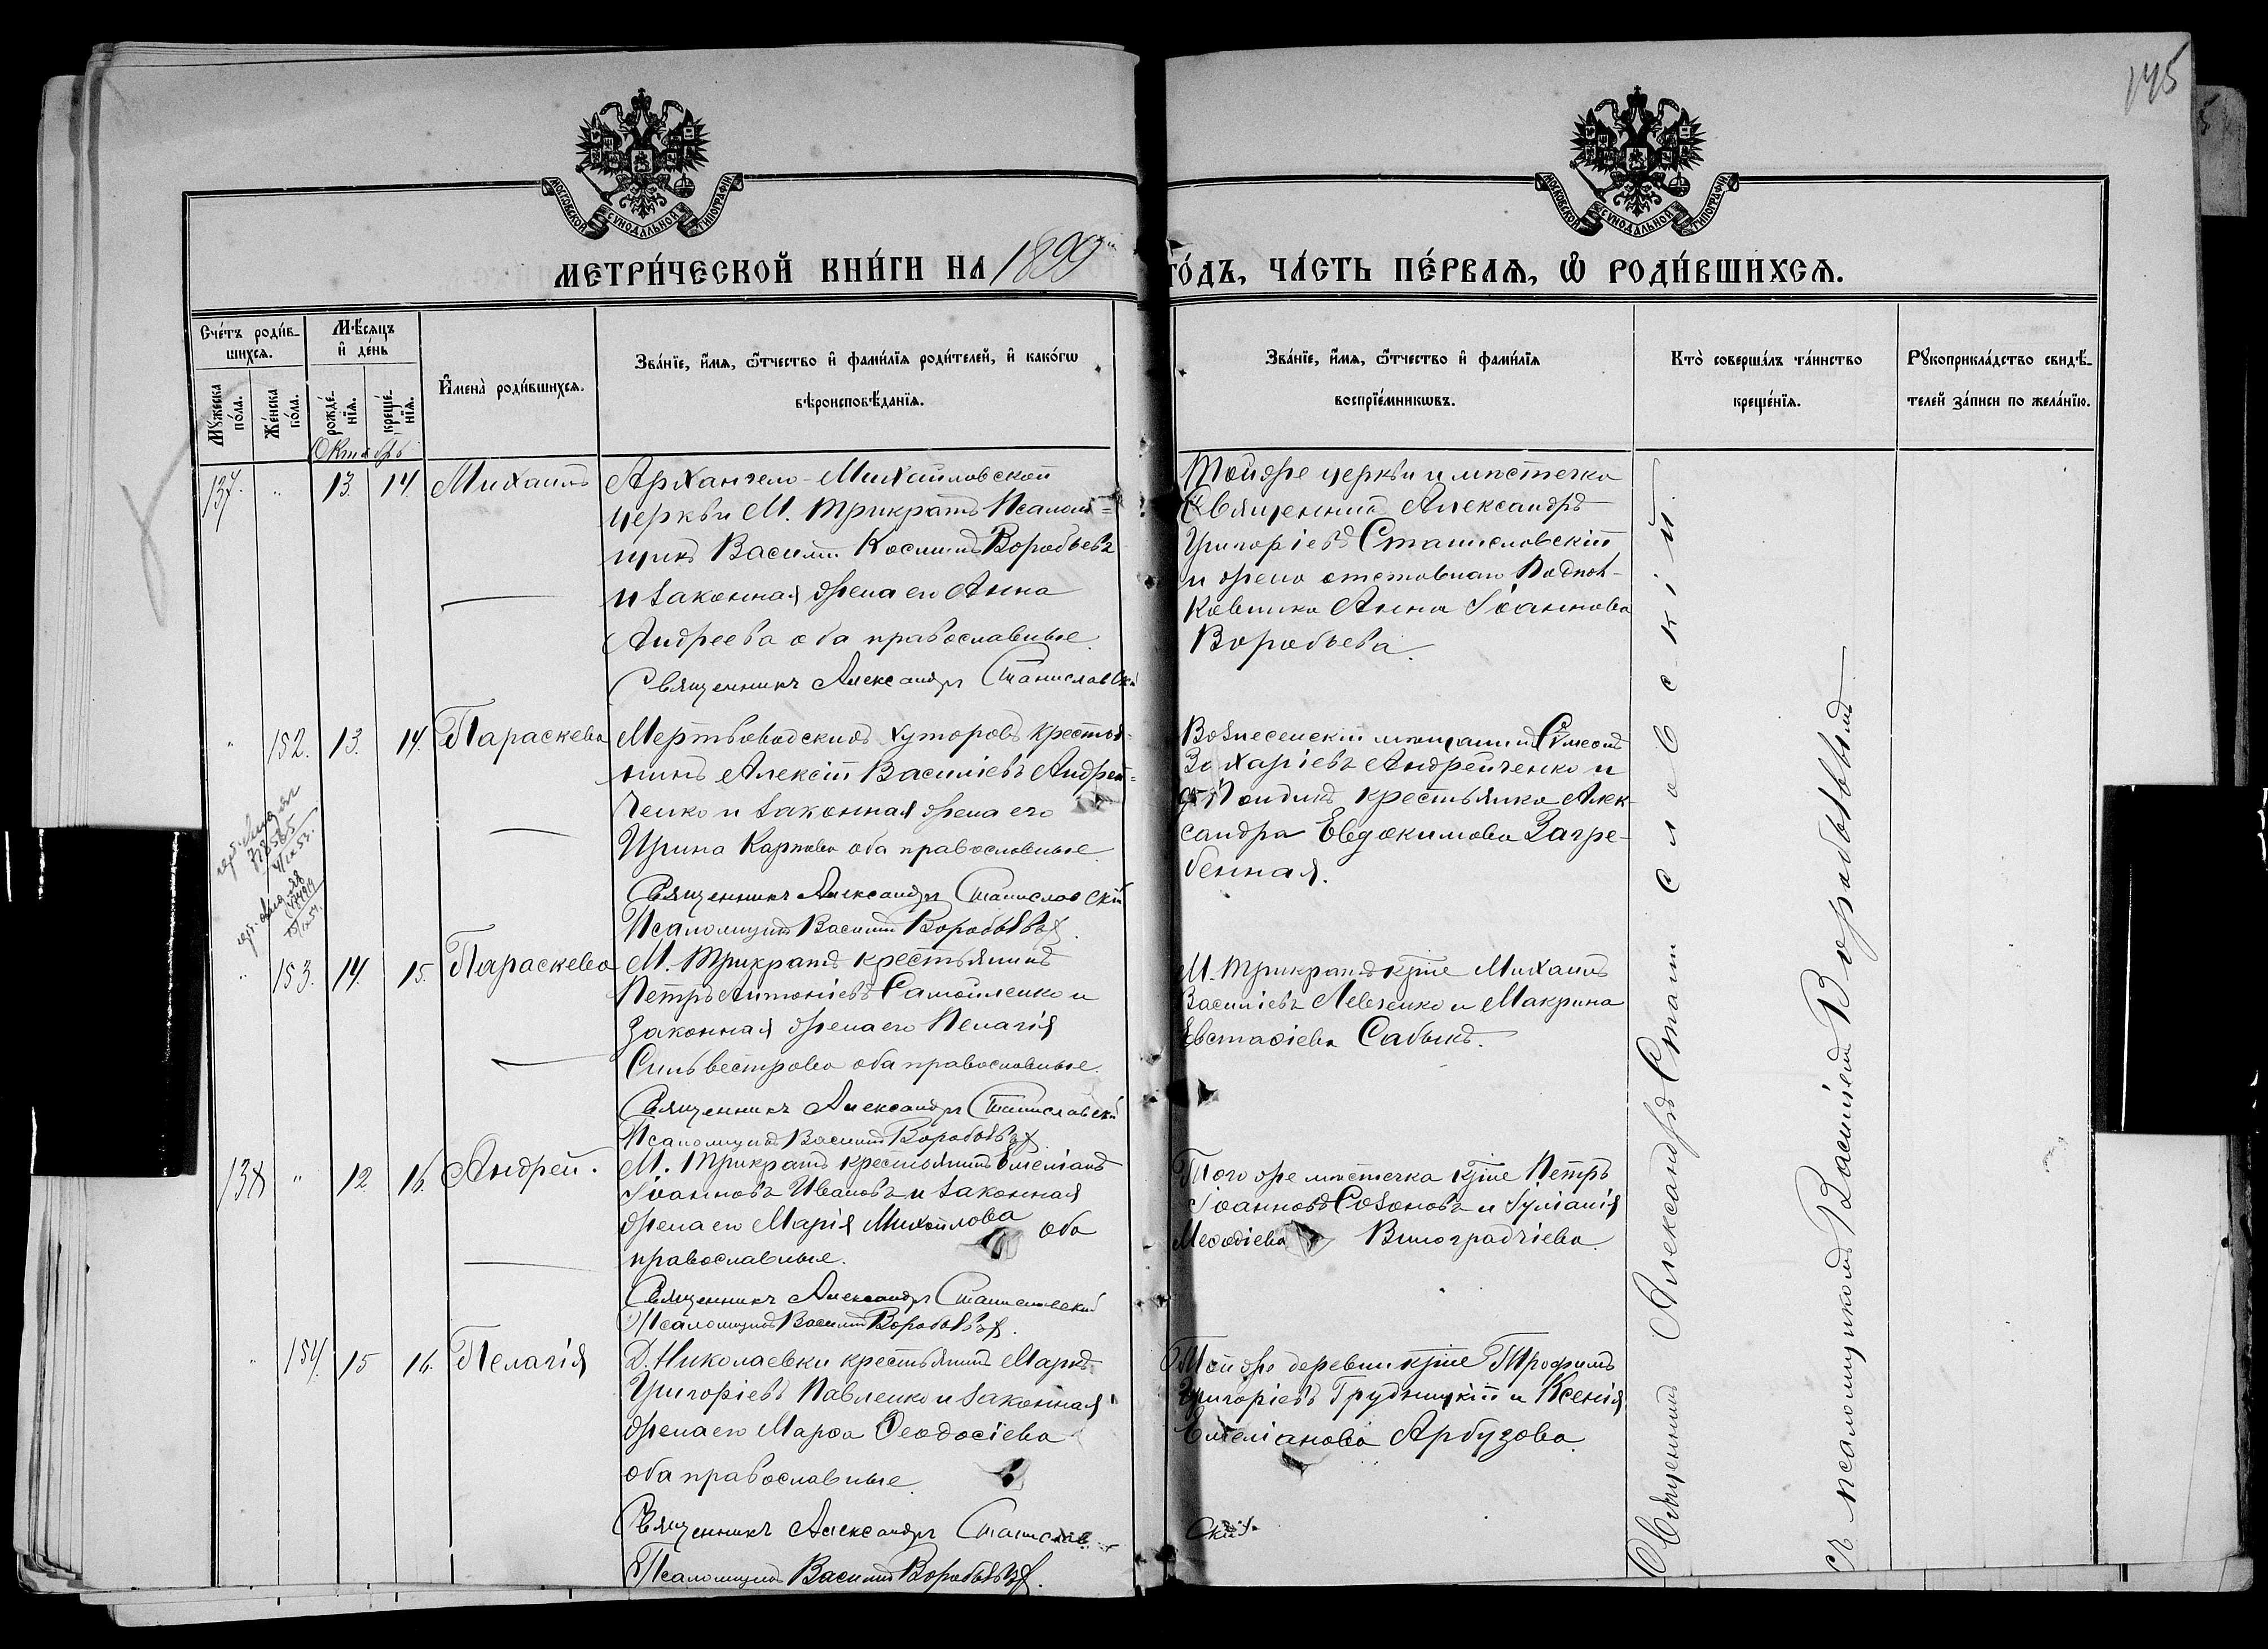 145
МОСКОВСКОЙ СѴНОДАЛЬНОЙ ТИПОГРАФІИ
МОСКОВСКОЙ СѴНОДАЛЬНОЙ ТИПОГРАФІИ
МЕТРИ́ЧЕСКОЙ КНИ́ГИ НА 1899 ГО́ДЪ, ЧА́СТЬ ПЕ́РВАѦ, Ѡ҆ РОДИ́ВШИХСѦ.
Сче́тъ роди́в-
шихсѧ.
Мꙋ́жеска по́ла.
Же́нска по́ла.
Мѣ́сѧцъ
и҆ де́нь
рожде́-
нїѧ.
креще́-
нїѧ.
Октябрь
И҆мена̀ роди́вшихсѧ.
Зва́нїе, и҆́мѧ, ѻ҆́тчество и҆ фами́лїѧ роди́телей, и҆ како́гѡ
вѣроисповѣ́данїѧ.
Зва́нїе, и҆́мѧ, ѻ҆́тчество и҆ фами́лїѧ
воспрїе́мникѡвъ.
Кто̀ соверша́лъ та́инство
креще́нїѧ.
Рꙋкоприкла́дство свидѣ́-
телей за́писи по жела́нїю.
137. " 13. 14. Михаилъ
Архангело-Михайловской
церкви М. Трикратъ Псалом-
щикъ Василій Косминъ Воробьевъ
и законная жена его Анна
Андреева оба православные.
Священникъ Александръ Станиславскій
Тойже церкви и мѣстечка
Священникъ Александръ
Григоріевъ Станиславскій
и жена отставнаго
Анна Іоаннова
Воробьева.
" 152. 13. 14. Параскева
Мертвоводскихъ хуторовъ крестья-
нинъ Алексій Василіевъ Андрей-
ченко и законная жена его
Ирина Карпова оба православные.
Священникъ Александръ Станиславскій
Псаломщикъ Василій Воробьевъ
Вознесенскій мѣщанинъ Сѵмеонъ
Захаріевъ Андрейченко и
крестьянка Алек-
сандра Евдокимова Загре-
бенная.
" 153. 14. 15. Параскева
М. Трикратъ крестьянинъ
Петръ Антоніевъ Самойленко и
законная жена его Пелагія
Сильвестрова оба православные.
Священникъ Александръ Станиславскій
Псаломщикъ Василій Воробьевъ
М. Трикратъ кр-не Михаилъ
Василіевъ Левченко и Макрина
Евстаѳіева
138 " 12. 16. Андрей.
М. Трикратъ крестьянинъ Емеліанъ
Іоанновъ Ивановъ и законная
жена его Марія Михайлова оба
православные.
Священникъ Александръ Станиславскій
Псаломщикъ Василій Воробьевъ
Того же мѣстечка кр-не Петръ
Іоанновъ Созоновъ и Іуліанія
Меѳодіева Виноградчіева.
" 154. 15 16. Пелагія
Д. Николаевки крестьянинъ Маркъ
Григоріевъ Павленко и законная
жена его Марѳа Ѳеодосіева
оба православные.
Священникъ Александръ Станислав-
скій.
Псаломщикъ Василій Воробьевъ
Той же деревни кр-не Трофимъ
Григоріевъ Грудницкій и Ксенія
Емеліанова Арбузова.
Священникъ Александръ Станиславскій.
съ псаломщикомъ Василіемъ Воробьевымъ